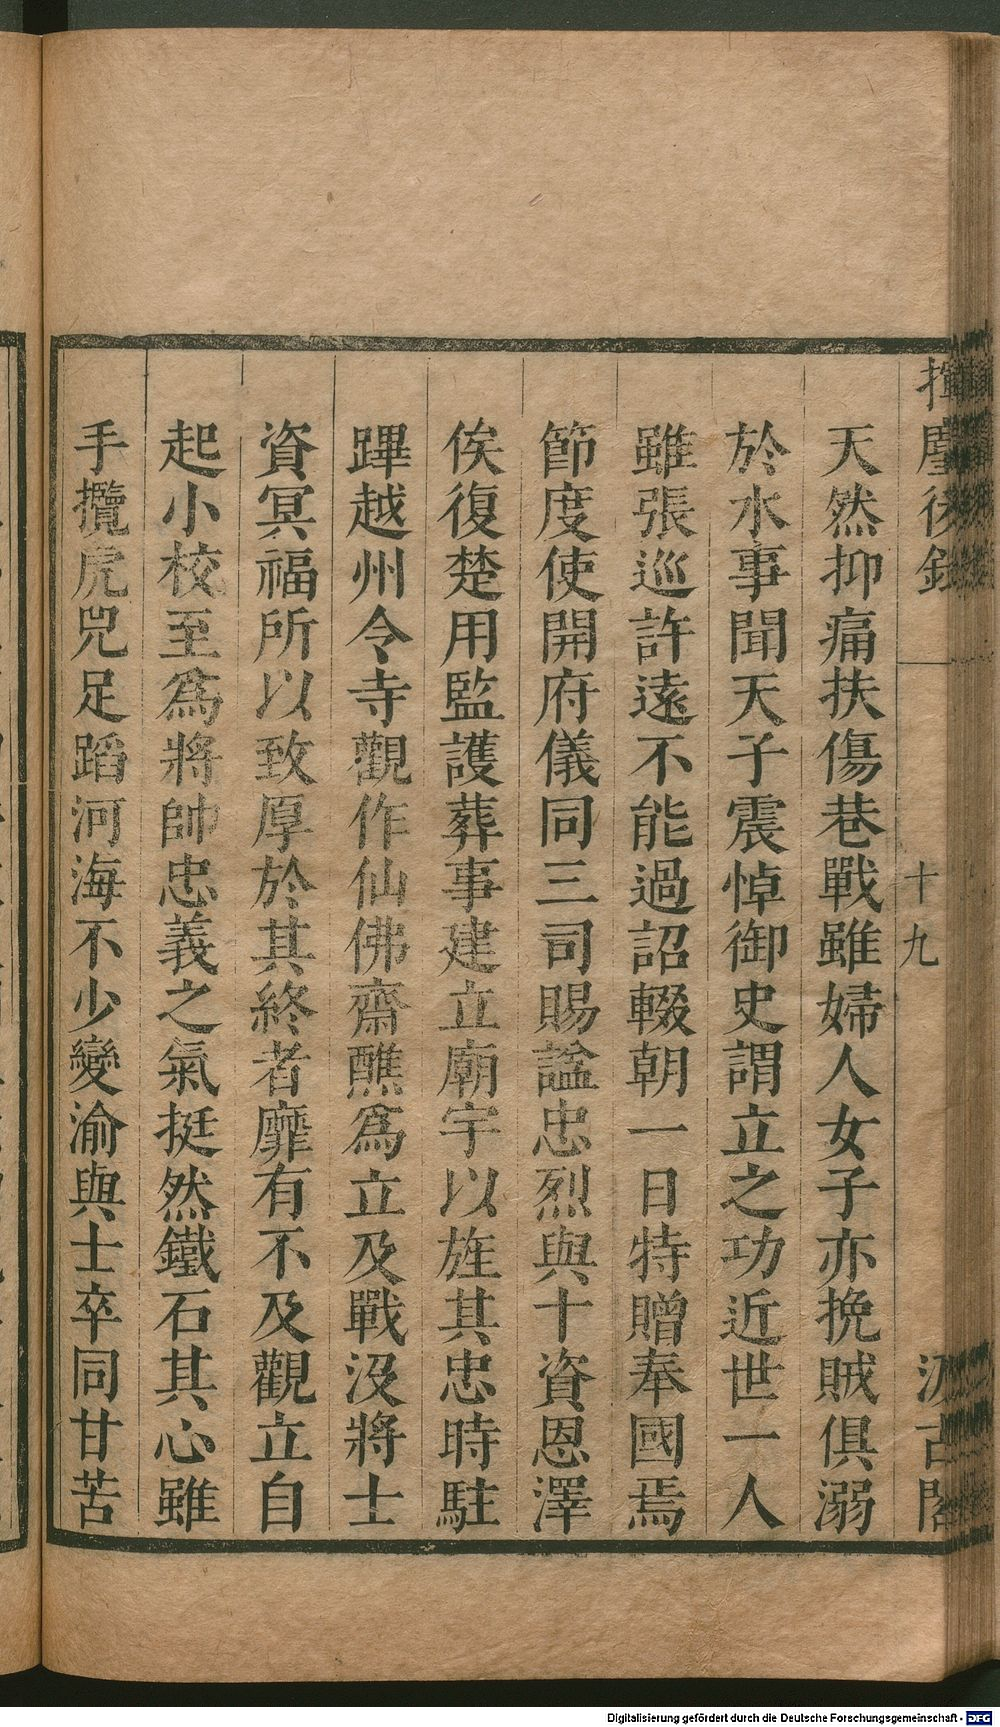 揮麈後錄 十九 汲古閣
天然抑痛扶傷巷戰雖婦人女子亦挽賊俱溺
於水事聞天子震悼御史謂立之功近世一人
雖張巡許遠不能過詔輟朝一日特贈奉國焉
節度使開府儀同三司賜謚忠烈與十資恩澤
俟復楚用監護葬事建立廟宇以旌其忠時駐
蹕越州令寺觀作仙佛齋醮爲立及戰沒將士
資冥福所以致厚於其終者靡有不及觀立自
起小校至爲將帥忠義之氣挺然鐵石其心雖
手攬虎兕足蹈河海不少變渝與士卒同甘苦
Digitalisierung gefördert durch die Deutsche Forschungsgemeinschaft - DFG